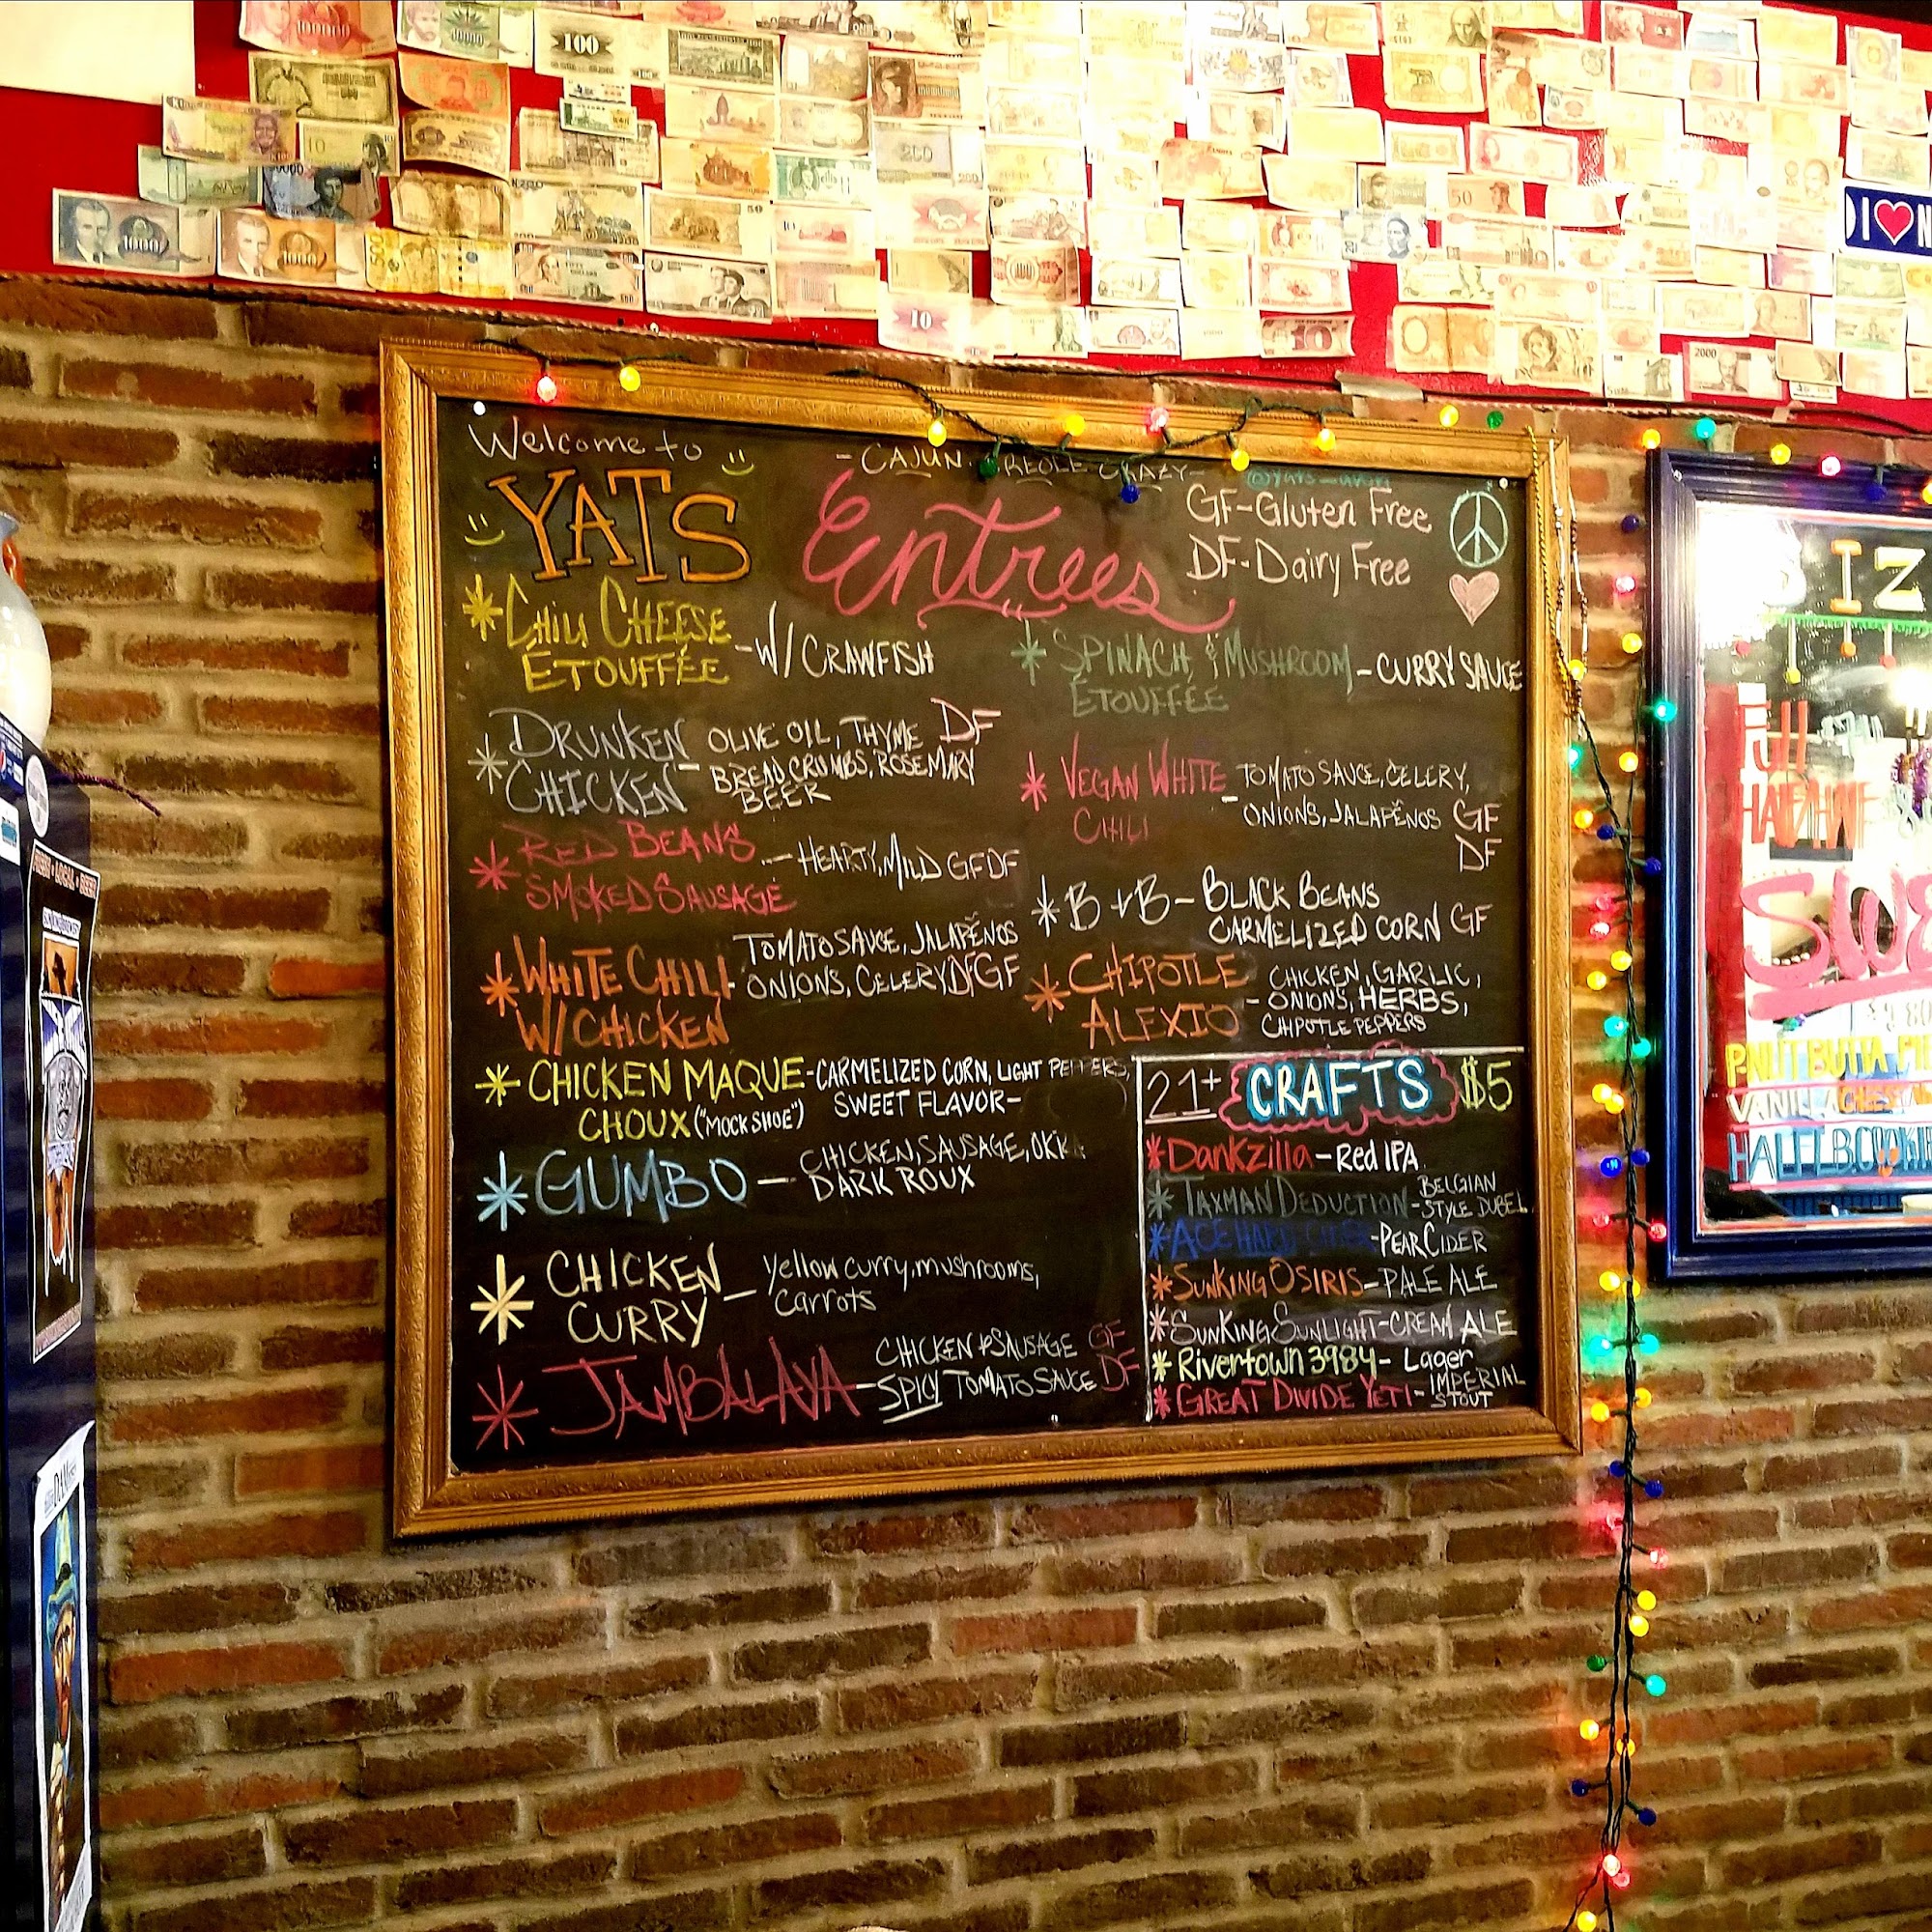 Welcome to
YATS
- CAJUN. CREOLE CRAZY-
Entrees
GF-Gluten Free
DF-Dairy Free
CHILI CHEESE
ÉTOUFFÉE -W/ CRAWFISH
DRUNKEN - OLIVE OIL, THYME DF
CHICKEN BREAD CRUMBS, ROSEMARY
BEER
RED BEANS - HEARTY, MILD GF DF
SMOKED SAUSAGE
WHITE CHILI - TOMATO SAUCE, JALAPEÑOS
W/CHICKEN ONIONS, CELERY DF GF
CHICKEN MAQUE - CARMELIZED CORN, LIGHT PEPPERS,
CHOUX ("MOCK SHOE") SWEET FLAVOR-
GUMBO - CHICKEN, SAUSAGE, OKRA
DARK ROUX
CHICKEN - yellow curry, mushrooms,
CURRY carrots
JAMBALAYA - CHICKEN & SAUSAGE GF
SPICY TOMATO SAUCE DF
SPINACH & MUSHROOM - CURRY SAUCE
ÉTOUFFÉE
VEGAN WHITE - TOMATO SAUCE, CELERY,
CHILI ONIONS, JALAPEÑOS GF
DF
B + B - BLACK BEANS
CARMELIZED CORN GF
CHIPOTLE - CHICKEN, GARLIC,
ALEXIO ONIONS, HERBS,
CHIPOTLE PEPPERS
21+ CRAFTS $5
Dankzilla - Red IPA
TAXMAN DEDUCTION - BELGIAN
STYLE DUBEL
ACE HARD CIDER - PEAR CIDER
SUNKING OSIRIS - PALE ALE
SUNKING SUNLIGHT - CREAM ALE
Rivertown 3984 - Lager
GREAT DIVIDE YETI - IMPERIAL
STOUT
I ♥ N
IZ
HALF/HALF
SWE
P-NUT BUTTA
VANILLA